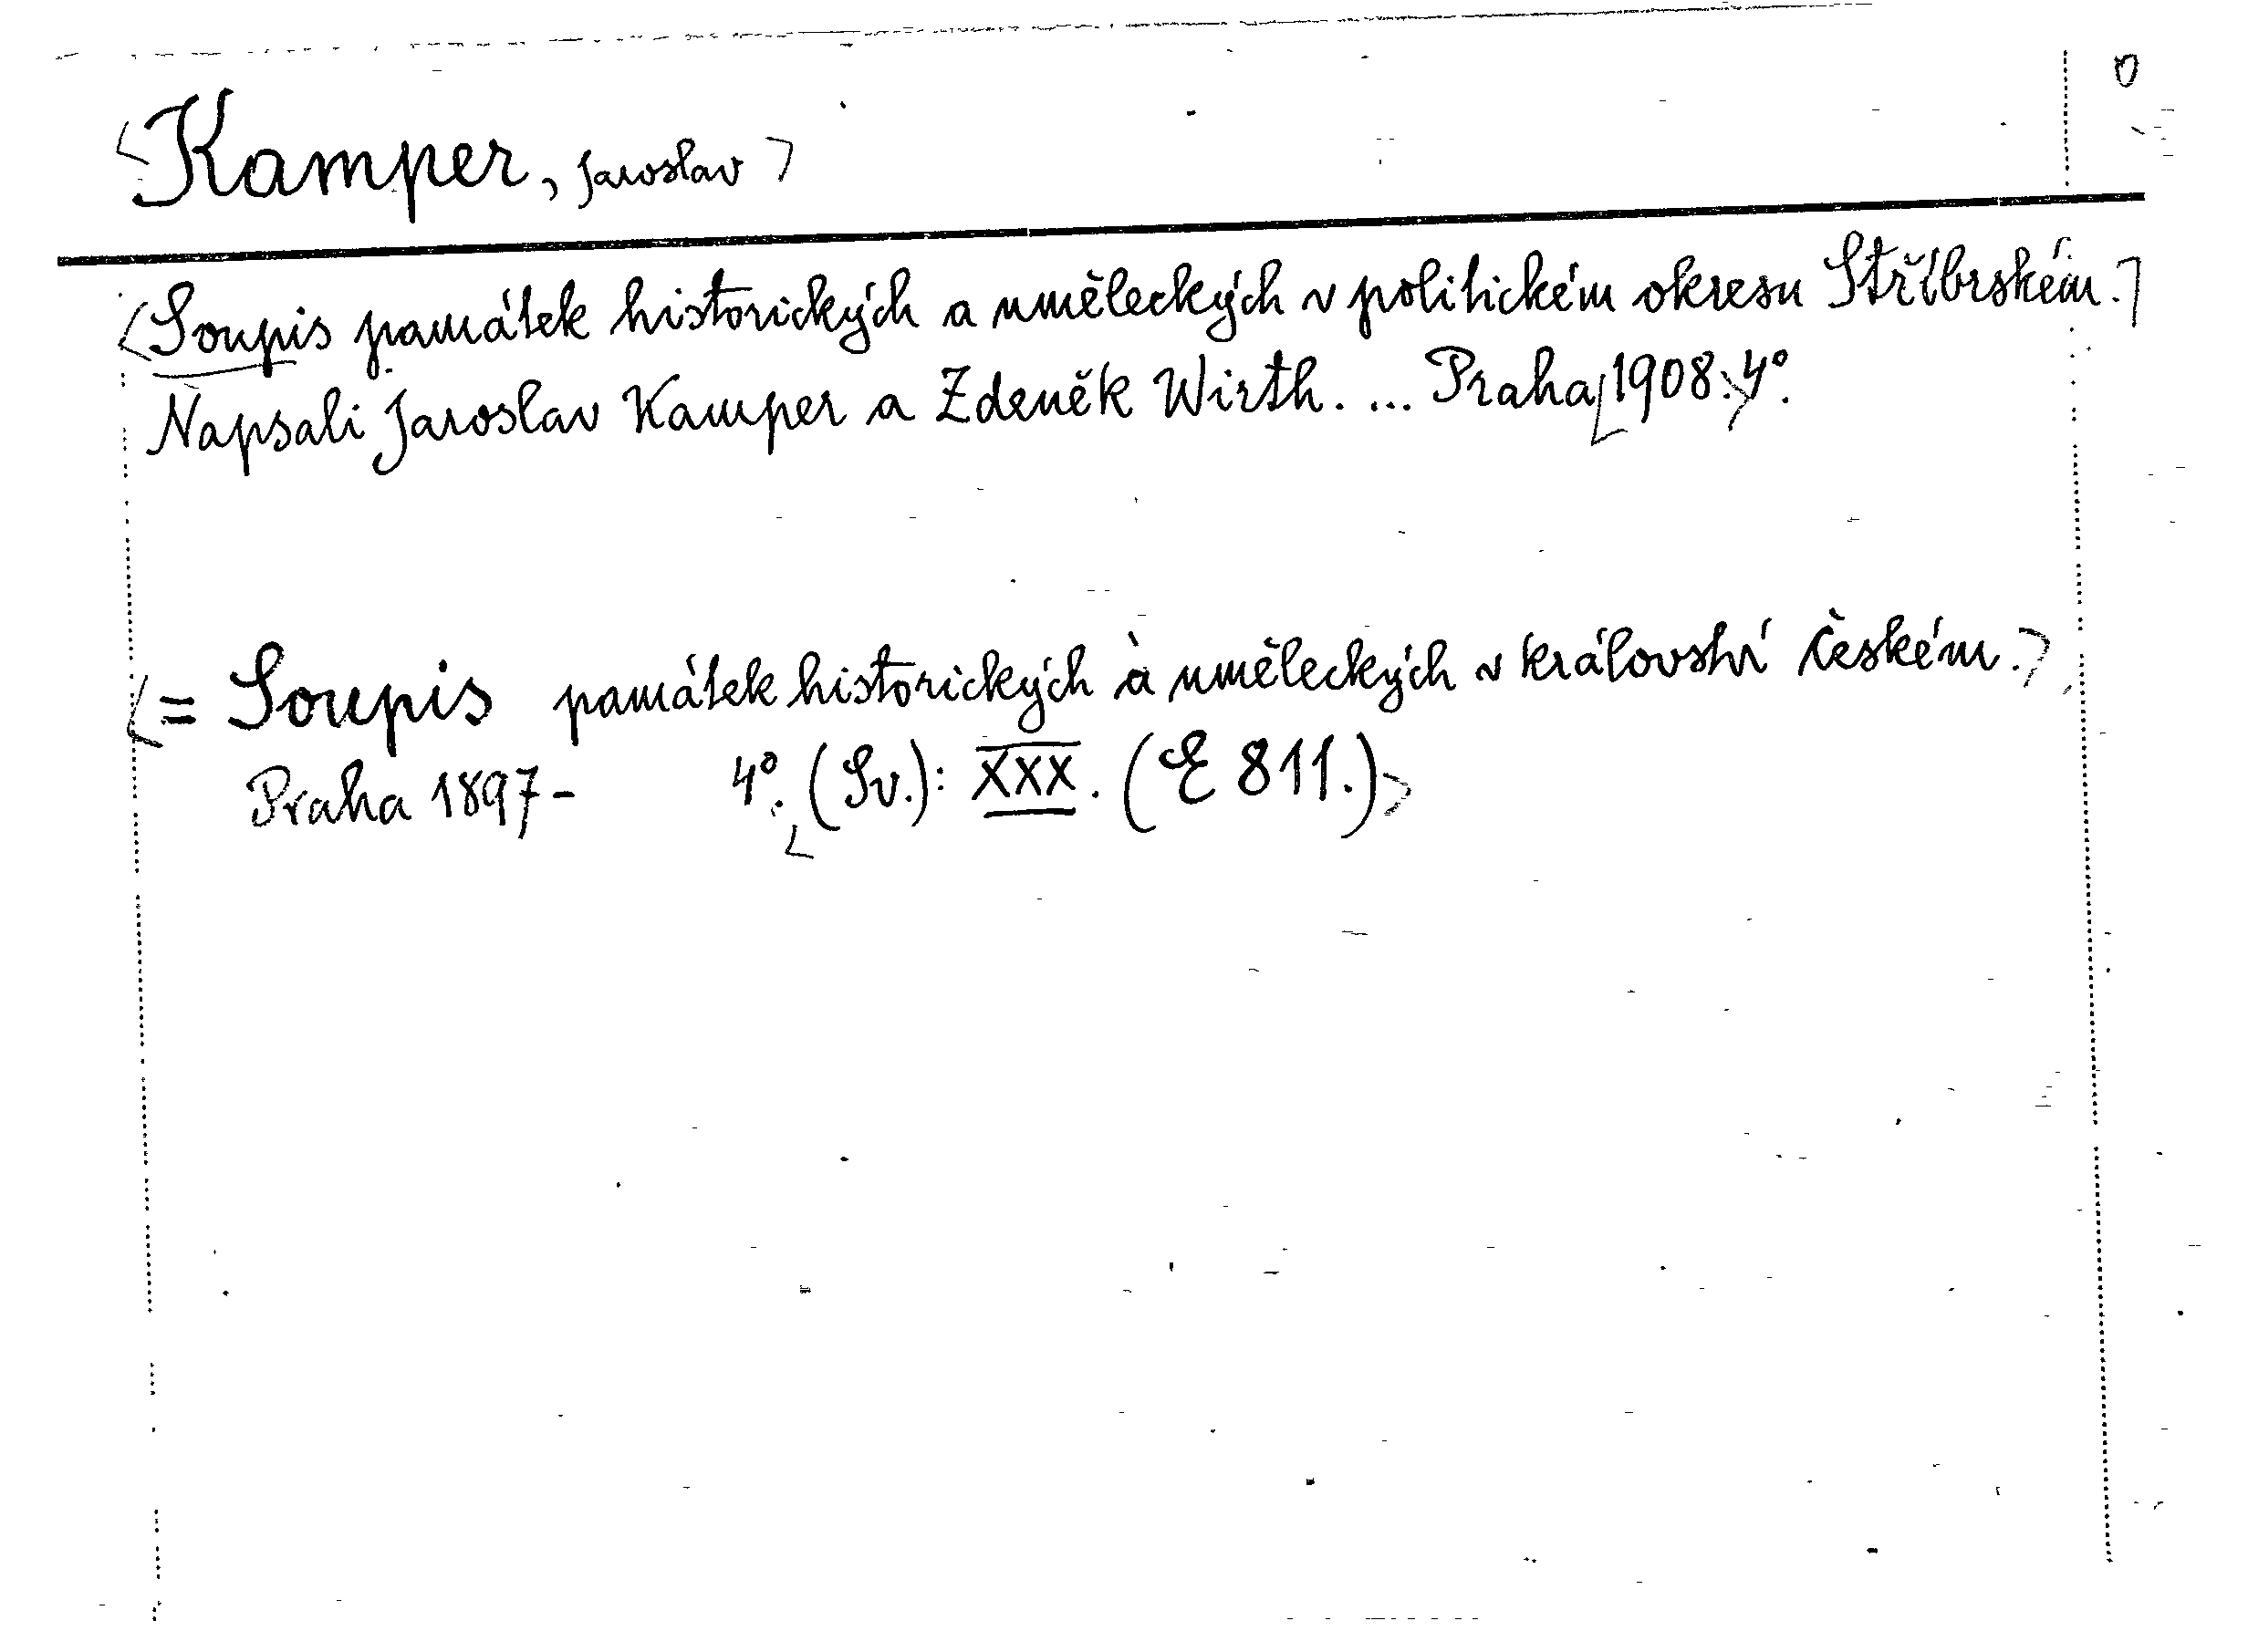 0
<Kamper, Jaroslav>
<Soupis památek historických a uměleckých v politickém okresu Stříbrském.>
Napsali Jaroslav Kamper a Zdeněk Wirth. ... Praha <1908.> 4°.
<= Soupis památek historických a uměleckých v království českém.>
Praha 1897- 4°. <(Sv.): XXX. (E 811.)>